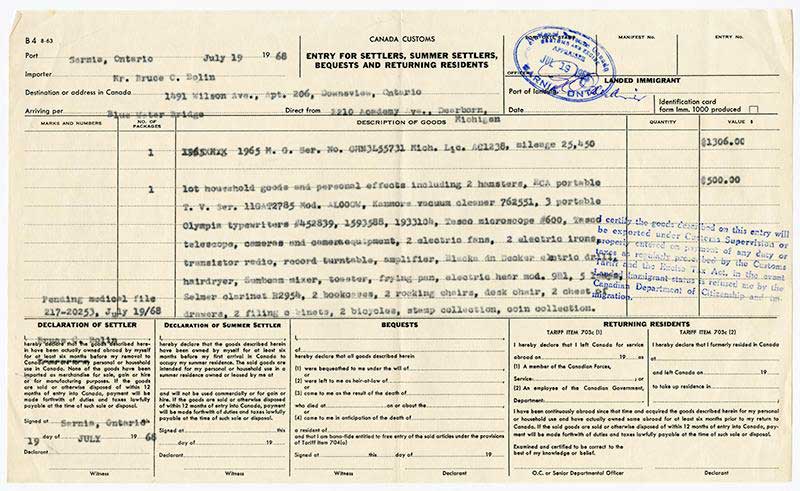 B4 8-63
CANADA CUSTOMS
ENTRY FOR SETTLERS, SUMMER SETTLERS,
BEQUESTS AND RETURNING RESIDENTS
MANIFEST No.
ENTRY No.
Port Sarnia, Ontario July 19 19 68
Importer Mr. Bruce C. Bolin
Destination or address in Canada 1491 Wilson Ave., Apt. 206, Downsview, Ontario
Arriving per Blue Water Bridge Direct from 2210 Academy Ave., Dearborn, Michigan
APPRAISED
JUL 29 1968
SARNIA, ONT.
LANDED IMMIGRANT
Port of landing
Date
Identification card
form Imm. 1000 produced
MARKS AND NUMBERS
NO. OF PACKAGES
DESCRIPTION OF GOODS
QUANTITY
VALUE $
1 1965 M. G. Ser. No. GHN3L55731 Mich. Lic. AC1238, mileage 25,450 $1306.00
1 lot household goods and personal effects including 2 hamsters, RCA portable $500.00
T. V. Ser. 11GAT2785 Mod. AL000W, Kenmore vacuum cleaner 762551, 3 portable
Olympia typewriters #452839, 1593588, 1933104, Tasco microscope #600, Tasco
telescope, cameras and cameraequipment, 2 electric fans, 2 electric irons,
transistor radio, record turntable, amplifier, Blacka dn Decker elctric drill,
hairdryer, Sunbeam mixer, toaster, frying pan, electric hear mod. 981, 5
Selmer clarinet R2954, 2 bookcases, 2 rocking chairs, desk chair, 2 chest of
drawers, 2 filing c binets, 2 bicycles, stamp collection, coin collection.
Pending medical file
217-20253, July 19/68
I certify the goods described on this entry will
be exported under Customs Supervision or
properly entered on payment of any duty or
taxes as regularly prescribed by the Customs
Tariff and the Excise Tax Act, in the event
Landed Immigrant status is refused me by the
Canadian Department of Citizenship and Im-
migration.
DECLARATION OF SETTLER
I, Bruce C. Bolin
hereby declare all the goods described here-
in have been actually owned abroad by myself
for at least six months before my removal to
Canada and
use. None of the goods have been
imported as merchandise for sale, gain or hire
or for manufacturing purposes. If the goods
are sold or otherwise disposed of within 12
months of entry into Canada, payment will be
made forthwith of duties and taxes lawfully
payable at the time of such sale or disposal.
Signed at Sarnia, Ontario
19 day of JULY 19 68
Witness
DECLARATION OF SUMMER SETTLER
I,
hereby declare that the goods described herein
have been actually owned by myself for at least six
months before my first arrival in Canada to
occupy my summer residence. The said goods are
intended for my personal or household use in a
summer residence owned or leased by me at
and will not be used commercially or for gain or
hire. If the goods are sold or otherwise disposed
of within 12 months of entry into Canada, payment
will be made forthwith of duties and taxes lawfully
payable at the time of such sale or disposal.
Signed at
this day of 19
Witness Declarant
BEQUESTS
I,
of
hereby declare all goods described herein
(1) were bequeathed to me under the will of
(2) were left to me as heir-at-law of
(3) came to me as the result of the death of
who died at on or about the
(4) came to me in anticipation of the death of
a resident of
and that I am bona-fide entitled to free entry of the said articles under the provisions
of Tariff item 704(a)
Signed at this day of 19
Witness Declarant
RETURNING RESIDENTS
TARIFF ITEM 703c (1)
I hereby declare that I left Canada for service
abroad on 19 as
(1) A member of the Canadian Forces,
Service; or
(2) An employee of the Canadian Government,
Department:
TARIFF ITEM 703c (2)
I hereby declare that I formerly resided in Canada
at
and left Canada on 19
to take up residence in
I have been continuously abroad since that time and acquired the goods described herein for my personal
or household use and have actually owned same abroad for at least six months prior to my return to
Canada. If the said goods are sold or otherwise disposed of within 12 months of entry into Canada, pay-
ment will be made forthwith of duties and taxes lawfully payable at the time of such sale or disposal.
Examined and certified to be correct to the
best of my knowledge or belief.
O.C. or Senior Departmental Officer Declarant